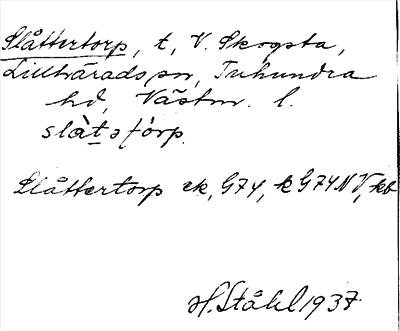 Slåttertorp, t, V. Skogsta,
Lillhärads sn, Tuhundra
hd, Västm. l.
slàtəfórp.
Slåttertorp ek, G74, k G74NV, kb
H. Ståhl 1937.